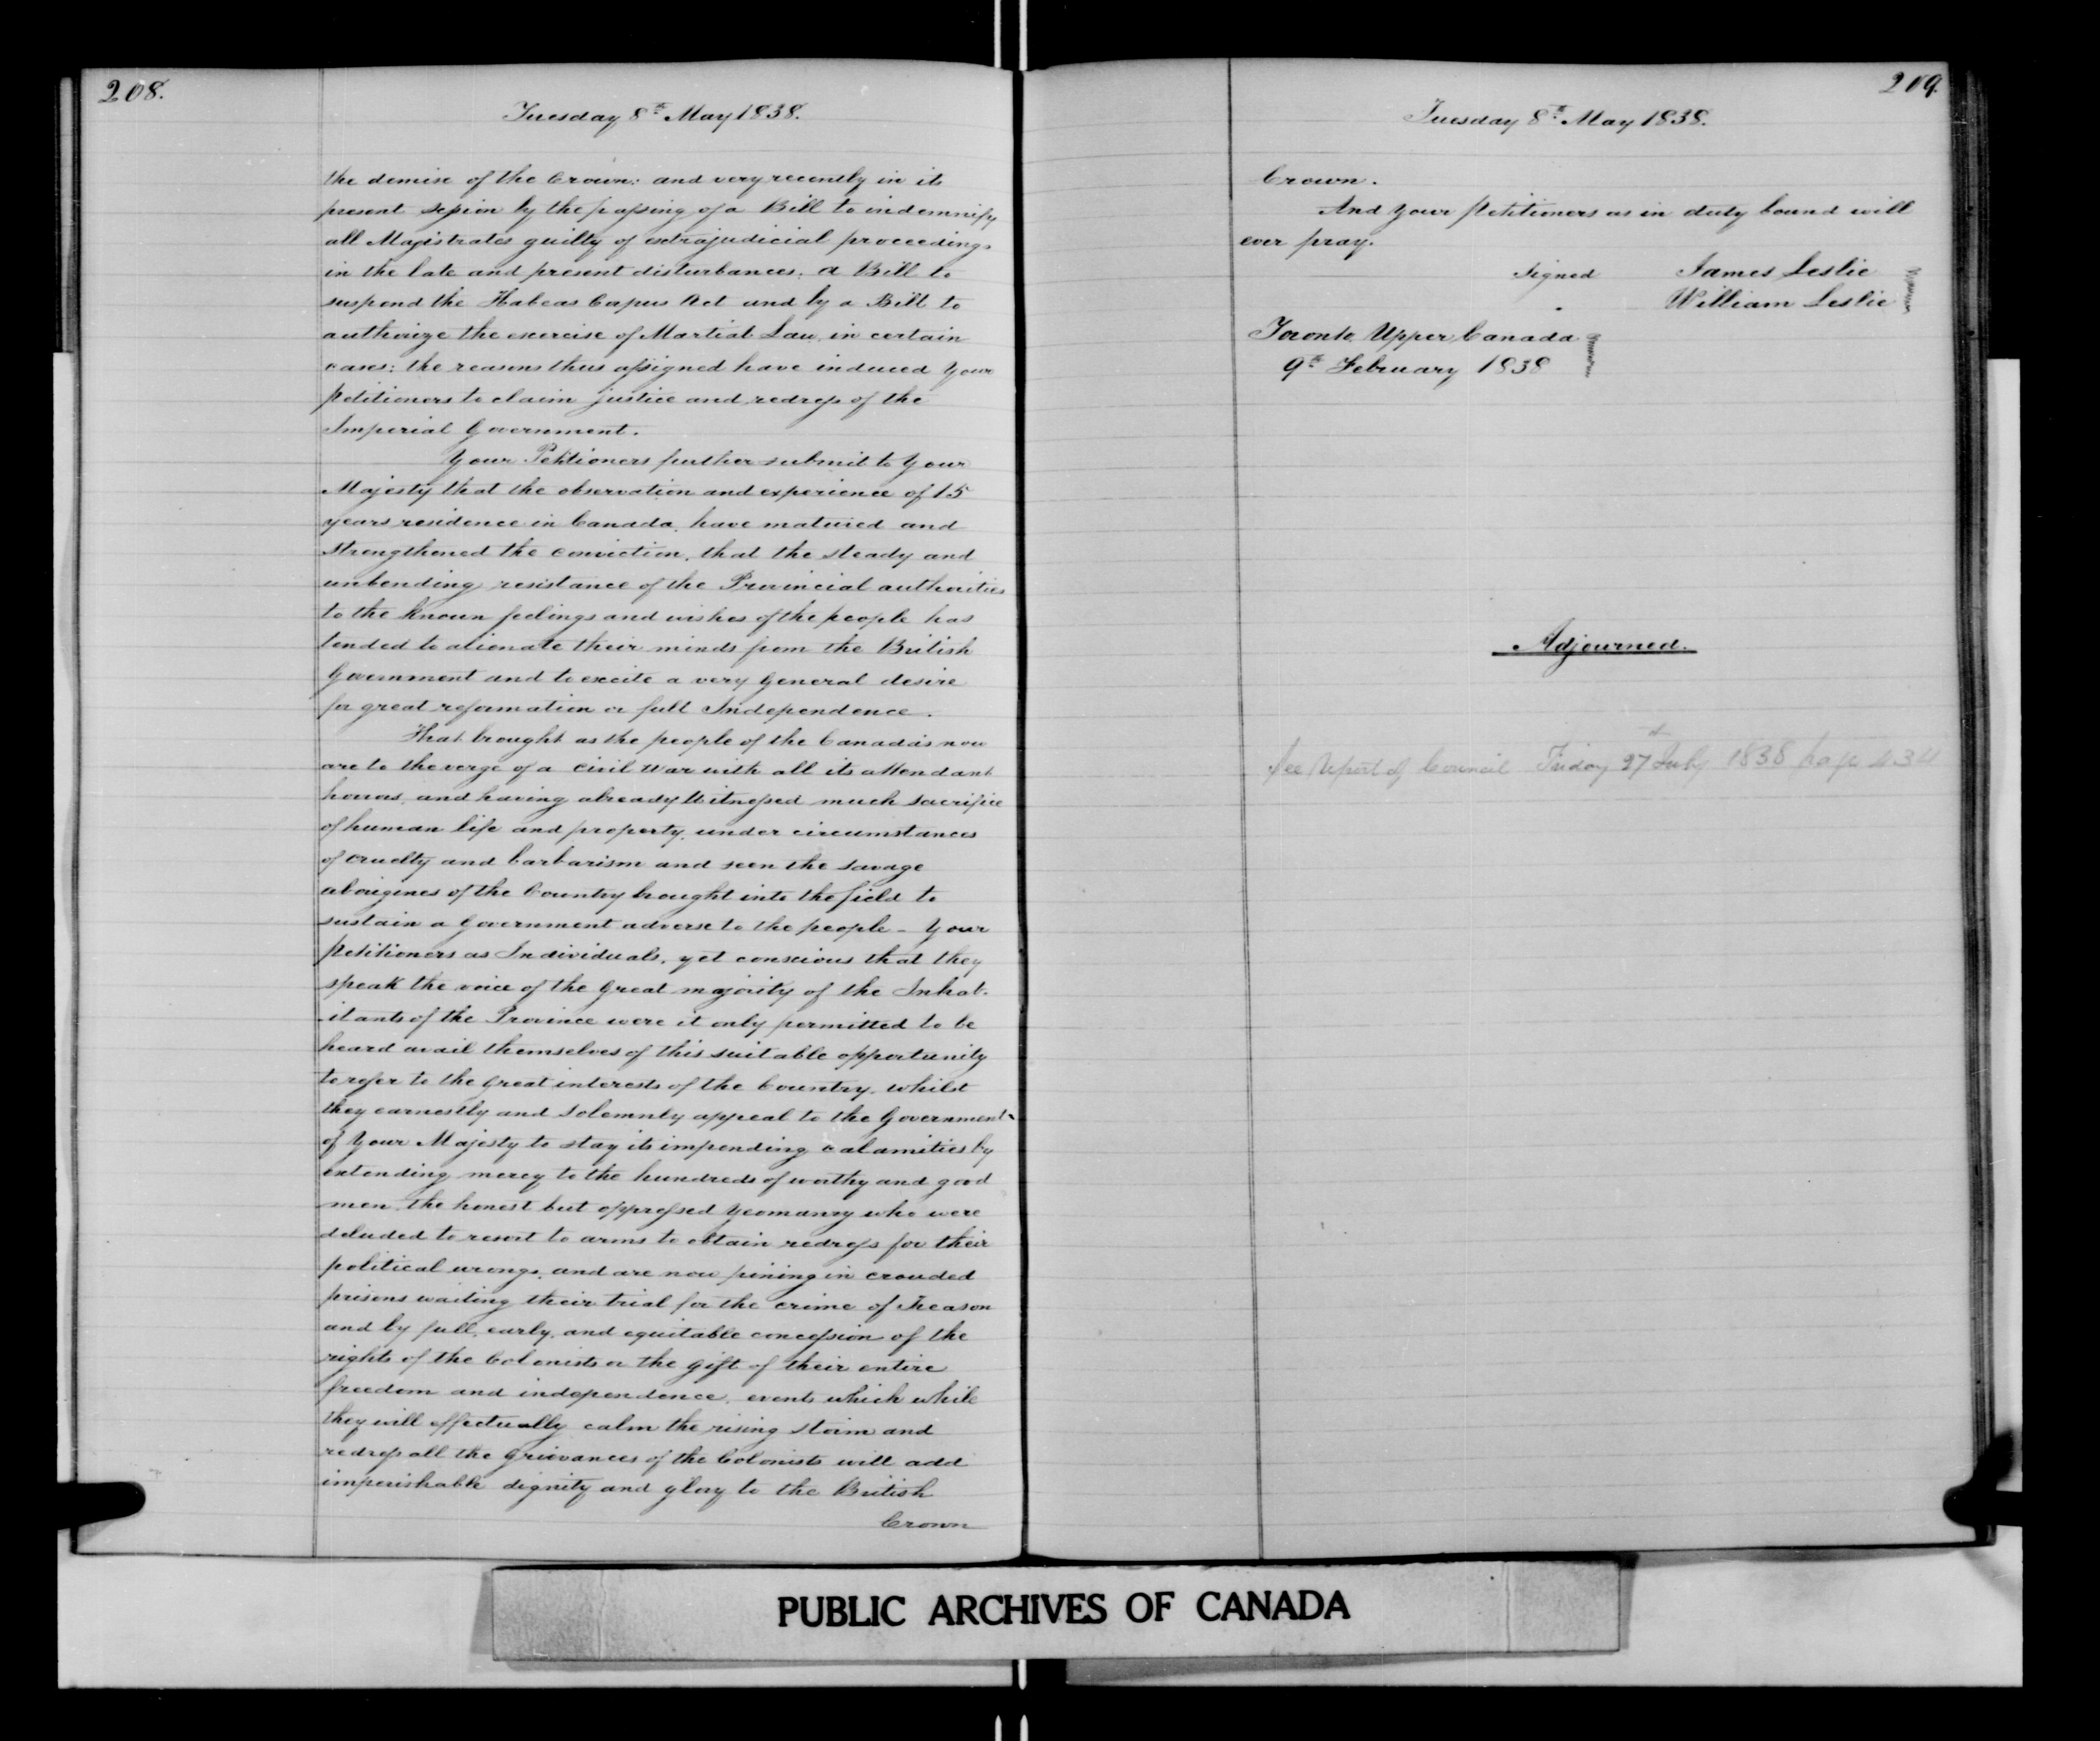 208.
Tuesday 8th May 1838.
the demise of the Crown: and very recently in its
present session by the passing of a Bill to indemnify
all Magistrates guilty of extrajudicial proceedings
in the late and present disturbances; a Bill to
suspend the Habeas Corpus Act and by a Bill to
authorize the exercise of Martial Law, in certain
cases: the reasons thus assigned have induced your
petitioners to claim justice and redress of the
Imperial Government.
Your Petitioners further submit to Your
Majesty that the observation and experience of 15
years residence in Canada, have matured and
strengthened the conviction, that the steady and
unbending resistance of the Provincial authorities
to the known feelings and wishes of the people has
tended to alienate their minds from the British
Government and to excite a very general desire
for great reformation or full Independence.
That brought as the people of the Canadas now
are to the verge of a civil war with all its attendant
horrors, and having already witnessed much sacrifice
of human life and property, under circumstances
of cruelty and barbarism and seen the savage
aborigines of the Country brought into the field to
sustain a Government adverse to the people - Your
petitioners as Individuals, yet conscious that they
speak the voice of the great majority of the Inhab-
-itants of the Province were it only permitted to be
heard avail themselves of this suitable opportunity
to refer to the great interests of the Country, whilst
they earnestly and solemnly appeal to the Government
of Your Majesty to stay its impending calamities by
extending mercy to the hundreds of worthy and good
men, the honest but oppressed yeomanry who were
deluded to resort to arms to obtain redress for their
political wrongs, and are now pining in crouded
prisons waiting their trial for the crime of Treason
and by full, early, and equitable concession of the
rights of the Colonists or the gift of their entire
freedom and independence, events which while
they will effectually calm the rising storm and
redress all the grievances of the Colonists will add
imperishable dignity and glory to the British
Crown
209.
Tuesday 8th May 1838.
Crown.
And Your Petitioners as in duty bound will
ever pray.
Signed James Leslie
William Leslie
Toronto Upper Canada
9th February 1838
Adjourned.
See Report of Council Friday 27th July 1838 page
PUBLIC ARCHIVES OF CANADA